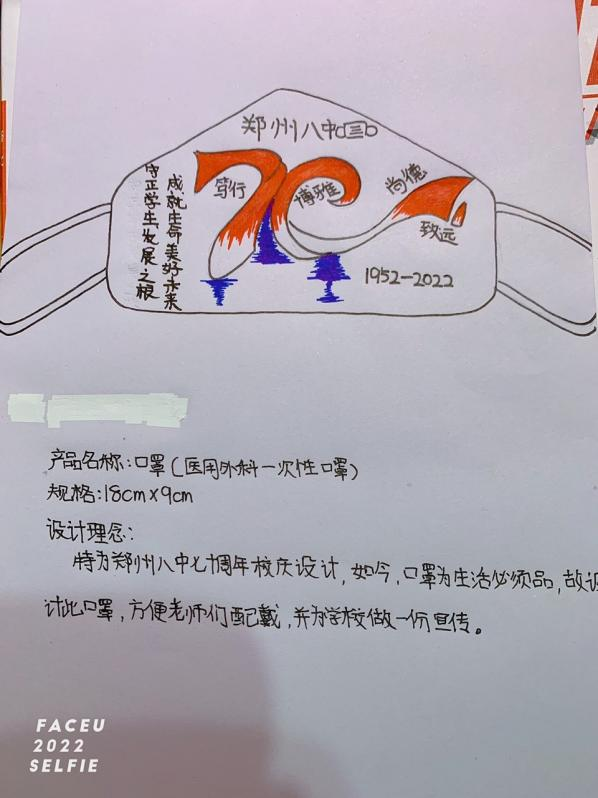 郑州八中
守正学生发展之根
成就生命美好未来
70
笃行
博雅
尚德
致远
1952-2022
产品名称:口罩(医用外科一次性口罩)
规格:18cm×9cm
设计理念:
特为郑州八中七十周年校庆设计,如今,口罩为生活必须品,故设
计此口罩,方便老师们配戴,并为学校做一份宣传。
FACEU
2022
SELFIE